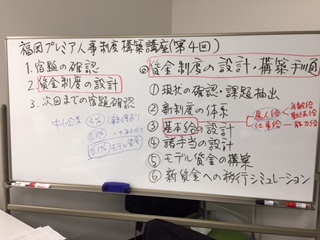 福岡プレミア人事制度構築講座(第4回)
1.宿題の確認
2.賃金制度の設計
3.次回までの宿題確認
中小企業
モデル賃金
◎賃金制度の設計・構築手順
①現状の確認・課題抽出
②新制度の体系
③基本給の設計
属人給
年齢給
勤続給
仕事給
能力給
④諸手当の設計
⑤モデル賃金の構築
⑥新賃金への移行シミュレーション